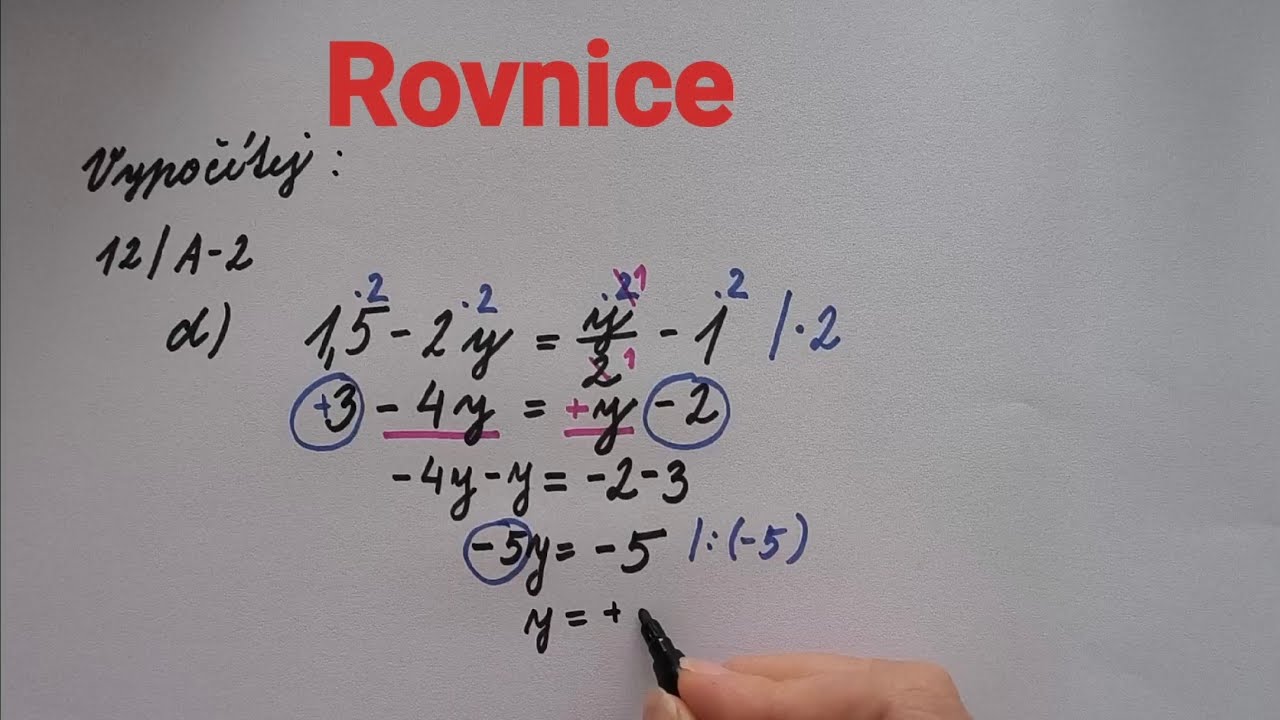 Rovnice
Vypočítej :
12/A-2
·2 ·2 ·2 1 ·2
d) 1,5 - 2y = y/2 - 1 / ·2
1
+3 - 4y = +y - 2
-4y - y = -2 - 3
-5y = -5 /:(-5)
y = +